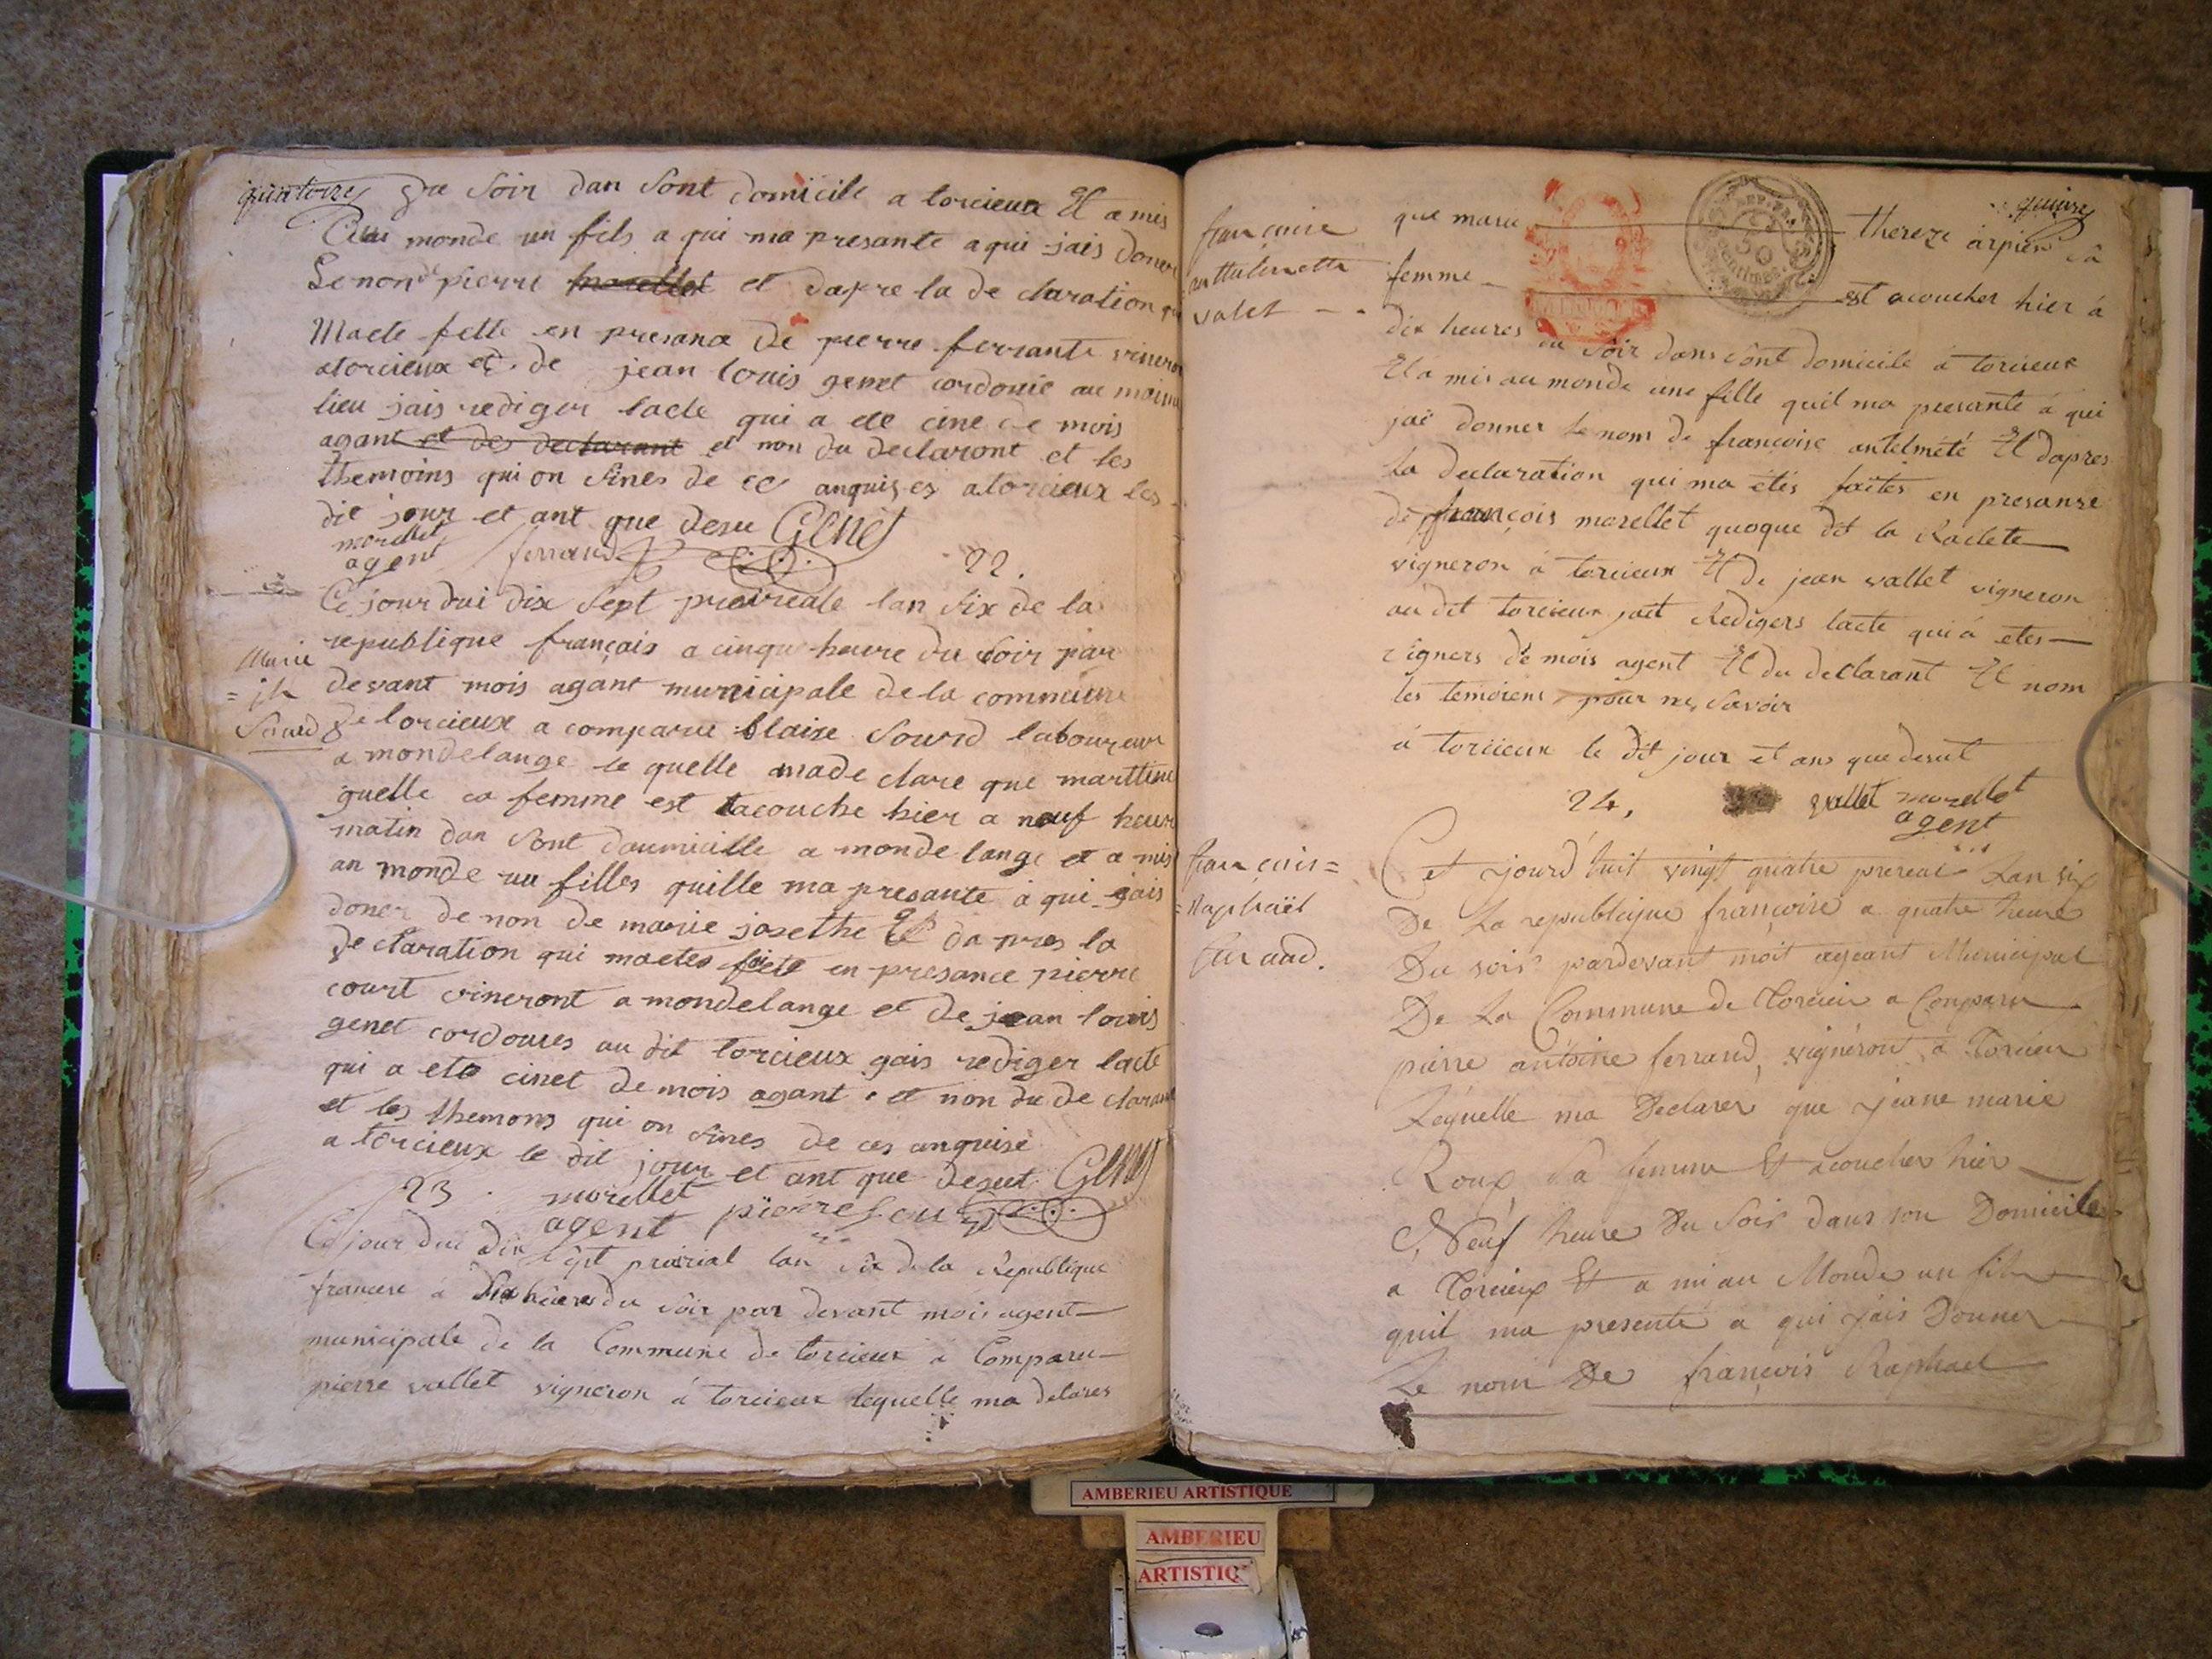 quatorze
du soir dan sont domicile a torcieux Et a mis
au monde un fils a qui ma presante a qui jais doner
Le non pierre morellet et dapre la de claration qui
Macte fette en presance de pierre ferrante vineron
a torcieux et de jean louis genet cordonie au maime
lieu jais rediger lacte qui a ete cine de mois
agant et des declarant et non du declaront et les
themoins qui on sines de ce anquis es a torcieux les
dit jour et ant que desu Genet
morellet
agent ferrand
22.
Ce jour dui dix sept prereale lan six de la
republique français a cinque heure du soir par
Marie
= jh
Sourd
devant mois agant municipale de la commune
de torcieux a comparue blaise sourd laboureur
a mondelange le quelle made clare que marttine
guelle ca femme est tacouche hier a neuf heur
matin dan sont daumicille a monde lange et a mis
au monde un filles quille ma presante a qui jais
doner de non de marie josethe Et da pres la
de claration qui ma etes faite en presance pierre
court vineront a mondelange et de jean louis
genet cordoues au dit torcieux gais rediger lacte
qui a ete cinet de mois agant et non du de clarant
et les themons qui on sines de ces anquise
a torcieux le dit jour et ant que desut Genet
23 morellet
agent pierre
Ce jour dui dix sept prairial lan six de la Republique
francese à dix heures du soir par devant mois agent
municipale de la Commune de torcieux à Comparu
pierre vallet vigneron á torcieux lequelle ma delares
quinze
francoise
anttelmette
valet
que marie thereze arpien sâ
femme est acoucher hier á
dix heures du soir dans sont domicile á torcieux
Et a mis au monde une fille quil ma presanté á qui
jaë donner le nom de françoise antelmété Et dapres
La declaration qui ma étés faites en presanse
de françois morellet quoque dit la Raclete
vigneron á torcieux Et de jean vallet vigneron
au dit torcieux jait Redigers lacte qui á etes
signers de mois agent Et du declarant Et nom
les temoiens pour ne savoir
á torcieux le dit jour et ans que desut
24, vallet morellet
agent
françois=
=Raphaël
ferrand.
Cet jourd'huit vingt quatre prereal Lan six
De La republique françoise a quatre heure
Du soir pardevant moit ageant Municipal
De La Commune de Torcieu a Comparu
pierre antoine ferrand, vignéront a Torcieu
Lequelle ma Declarer que jeane marie
Roux sâ femme Et acoucher hier
Neuf heure Du Soir dans son Domicile
a Torcieux Et a mi au Monde un fils
quil ma presenté a qui jais Donner
Le nom De françois Raphael
AMBERIEU ARTISTIQUE
AMBERIEU
ARTISTIQ